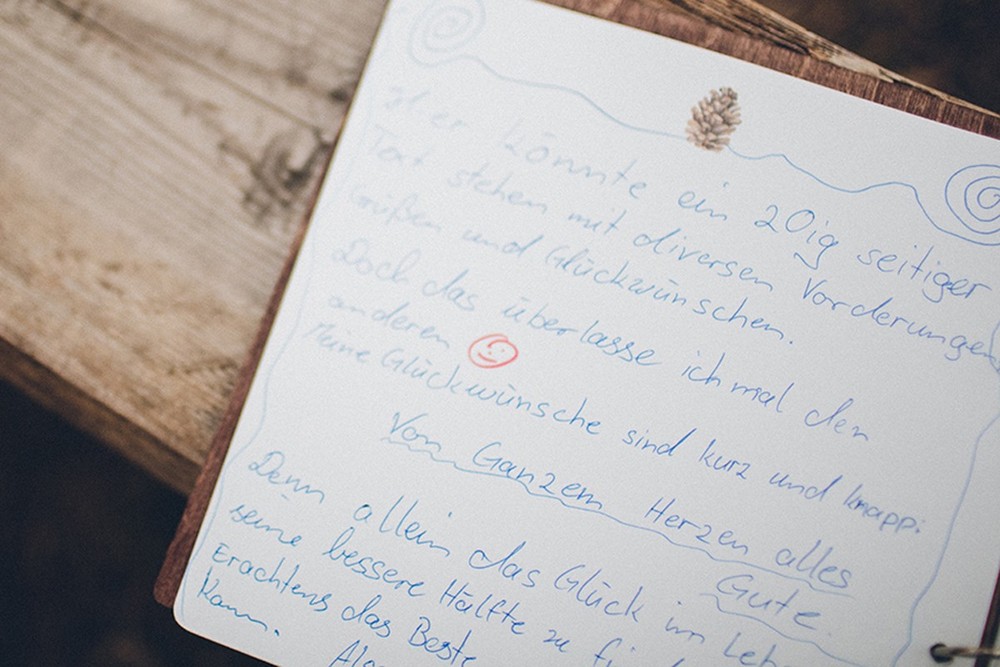 Hier könnte ein 20ig seitiger
Text stehen mit diversen Vorderungen
Grüßen und Glückwünschen.
Doch das überlasse ich mal den
anderen
Meine Glückwünsche sind kurz und knapp:
Von Ganzem Herzen alles
Gute.
Denn allein das Glück im Leb
seine bessere Hälfte zu fi
Erachtens das Beste
Kann.